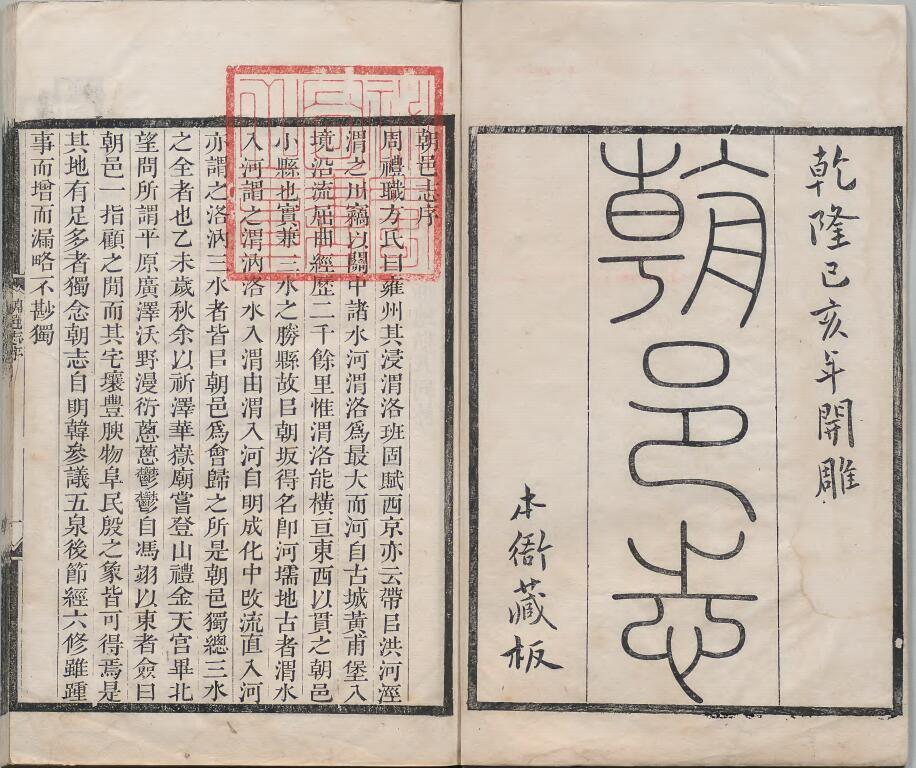 乾隆己亥年開雕
朝邑志
本衙藏板
朝邑志序
周禮職方氏曰雍州其浸渭洛班固賦西京亦云帶㠯洪河涇
渭之川竊以關中諸水河渭洛爲最大而河自古城黃甫堡入
境沿流屈曲經歷二千餘里惟渭洛能橫亘東西以貫之朝邑
小縣也實兼三水之勝縣故㠯朝坂得名卽河壖地古者渭水
入河謂之渭汭洛水入渭由渭入河自明成化中改流直入河
亦謂之洛汭三水者皆㠯朝邑爲會歸之所是朝邑獨總三水
之全者也乙未歲秋余以祈澤華嶽廟嘗登山禮金天宮畢北
望問所謂平原廣澤沃野漫衍蔥蔥鬱鬱自馮翊以東者僉曰
朝邑一指顧之閒而其宅壤豐腴物阜民殷之象皆可得焉是
其地有足多者獨念朝志自明韓參議五泉後節經六修雖踵
事而增而漏略不尠獨
朝邑志序
一